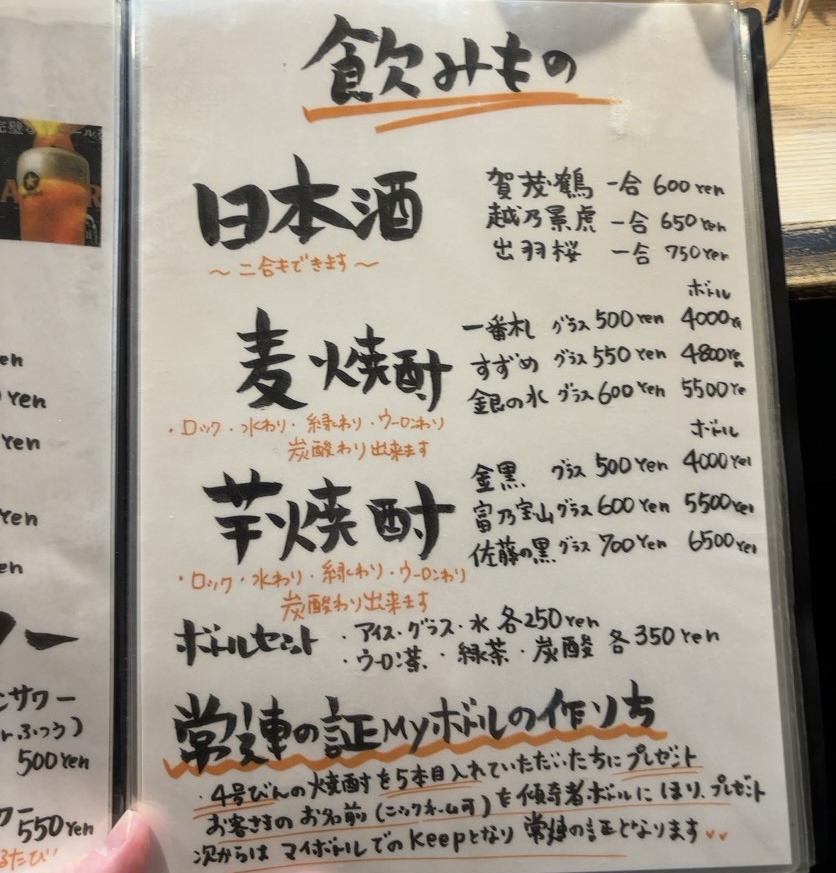 飲みもの
日本酒
〜二合もできます〜
賀茂鶴 一合 600yen
越乃景虎 一合 650yen
出羽桜 一合 750yen
麦焼酎
・ロック・水わり・緑わり・ウーロンわり
炭酸わり出来ます
ボトル
一番札 グラス 500yen 4000ye
すずめ グラス 550yen 4800yen
銀の水 グラス 600yen 5500ye
芋焼酎
・ロック・水わり・緑わり・ウーロンわり
炭酸わり出来ます
ボトル
金黒 グラス 500yen 4000yen
富乃宝山 グラス 600yen 5500yen
佐藤の黒 グラス 700yen 6500yen
ボトルセット
・アイス・グラス・水 各250yen
・ウーロン茶・緑茶・炭酸 各350yen
常連の証Myボトルの作り方
・4号びんの焼酎を5本目入れていただいたちにプレゼント
お客さまのお名前(ニックネーム可)を傾奇者ボトルにほり、プレゼント
次からはマイボトルでのKeepとなり常連の証となります
en
yen
yen
yen
en
ー
ンサワー
ふつう)
500yen
ワー
550yen
るたび